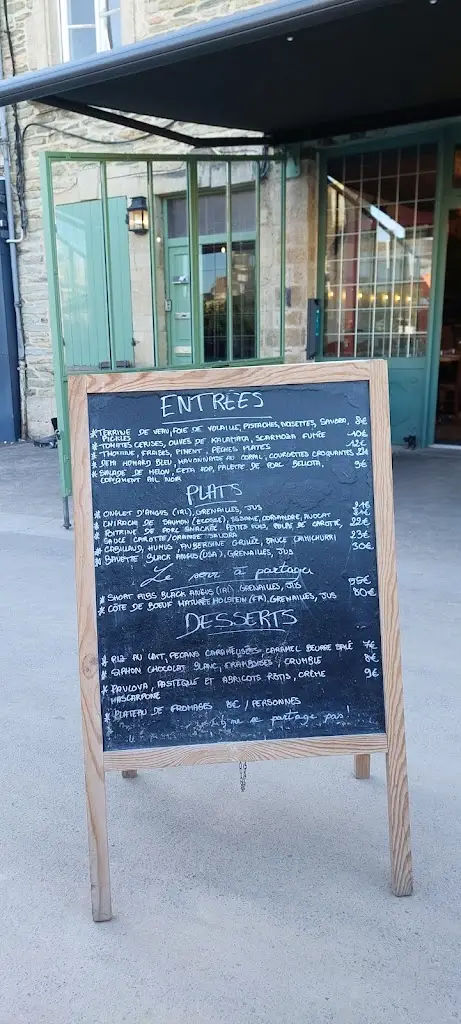 ENTRÉES
* TERRINE DE VEAU, FOIE DE VOLAILLE, PISTACHES, NOISETTES, 8€
PICKLES
* TOMATES CERISES, OLIVES DE KALAMATA, SCARMORZA FUMÉE 10€
* THON, FRAISES, PIMENT, PÊCHES PLATES 12€
* DEMI HOMARD BLEU, MAYONNAISE AU CORAIL, COURGETTES CROQUANTES 21€
* SALADE DE MELON, FETA AOP, PALETTE DE PORC BELLOTA, 9€
CONDIMENT AIL NOIR
PLATS
* ONGLET D'ANGUS (IRL), GRENAILLES, JUS
* DE SAUMON (ECOSSE), SÉSAME, CORIANDRE, AVOCAT
* POITRINE DE PORC SNACKÉE, PETITS POIS, PURÉE DE CAROTTE, 22€
SAUCE CAROTTE/ORANGE
* CABILLAUD, HUMUS, AUBERGINE GRILLÉE, SAUCE CHIMICHURRI 23€
* BAVETTE BLACK ANGUS (USA), GRENAILLES, JUS 30€
Le soir à partager
* SHORT RIBS BLACK ANGUS (IRL) GRENAILLES, JUS 95€
* CÔTE DE BOEUF MATURÉE HOLSTEIN (FR), GRENAILLES, JUS 80€
DESSERTS
* RIZ AU LAIT, PECANS CARAMÉLISÉES CARAMEL BEURRE SALÉ 7€
* SIPHON CHOCOLAT BLANC, FRAMBOISES, CRUMBLE 8€
* PAVLOVA, PASTÈQUE ET ABRICOTS RÔTIS, CRÈME 9€
MASCARPONE
* PLATEAU DE FROMAGES 8€ / PERSONNES
ne se partage pas !